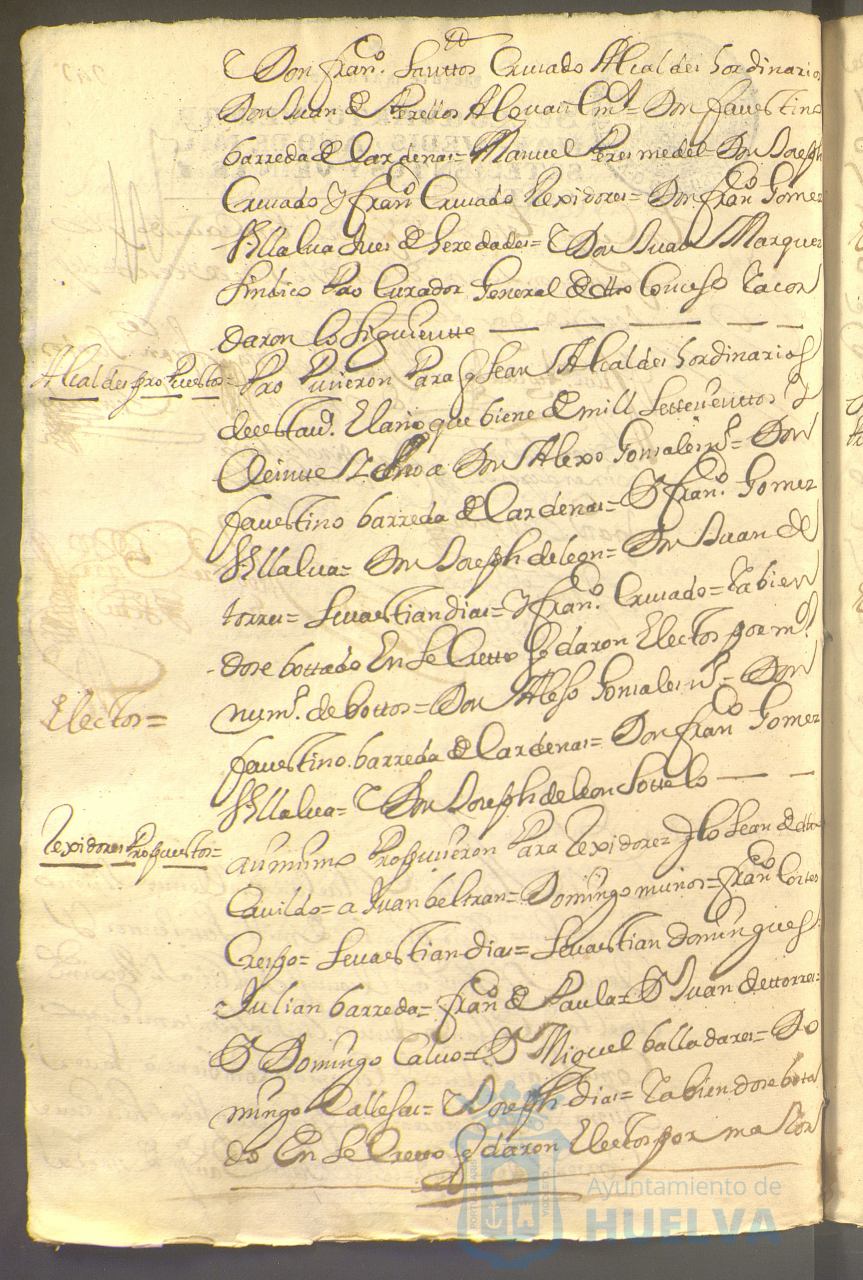 Don Fran.co Santtos Cruzado Alcaldes hordinarios
Don Juan de Don Faustino
barreda de Cardenas= Manuel Peres medel= Don Joseph
Cruzado Y Fran.co Cruzado Rexidores= Don Fran.co Gomez
Villalva Jues de heredades= Don Juan Marquez
Sindico Procurador General de dho Consejo Yacor
daron lo Siguiente
Alcaldes propuestos=
Propusieron Para q Sean Alcaldes hordinarios
deesta el año que biene de mill Settesienttos y
Veinte a Don Alexo Gonsales = Don
Faustino barreda de Cardenas= D Fran.co Gomez
Villalva= Don Joseph de leon= Don Juan de
torres= Sevastian dias= Y Fran.co Cruzado= Yabien
dose bottado En Secretto quedaron Electos por m.or
num.o de bottos= Don Alexo Gonsales = Don
Electos=
Faustino barreda de Cardenas= Don Fran.co Gomez
Villalva= Y Don Joseph de leon Sottelo
Rexidores Propuestos=
asimismo Propusieron Para Rexidores q lo Sean de dho
Cavildo= a Juan beltran= Domingo muños= Fran.co Cortes
Crespo= Sevastian dias= Sevastian domingues
Julian barreda= Fran.co de Paula= D Juan de ttorres=
D Domingo Calvo= D Miguel balladares= Do
mingo = Joseph dias= Yabiendose bota
do En Secretto quedaron Electos por maior
Ayuntamiento de
HUELVA